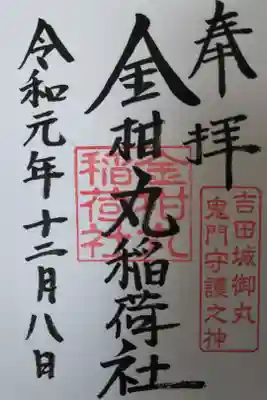 奉拝
吉田城御丸
鬼門守護之神
金柑丸稲荷社
金柑丸
稲荷社
令和元年十二月八日